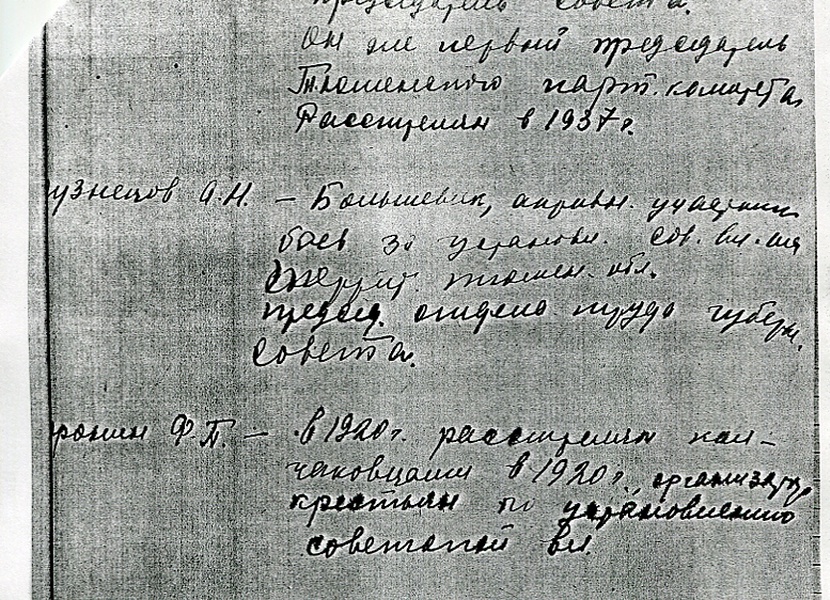 председатель совета.
Он же первый председатель
Тюменского парт. комитета,
Расстрелян в 1937 г.
узнецов А.Н. – Большевик, активн. участник
борь за установл. сов. вл. на
территт. тюмен. обл.
председ. отдела труда губерн.
совета.
ронин Ф.П. – в 1920 г. расстрелян кол-
чаковцами в 1920 г. организатор
крестьян по установлению
советской вл.